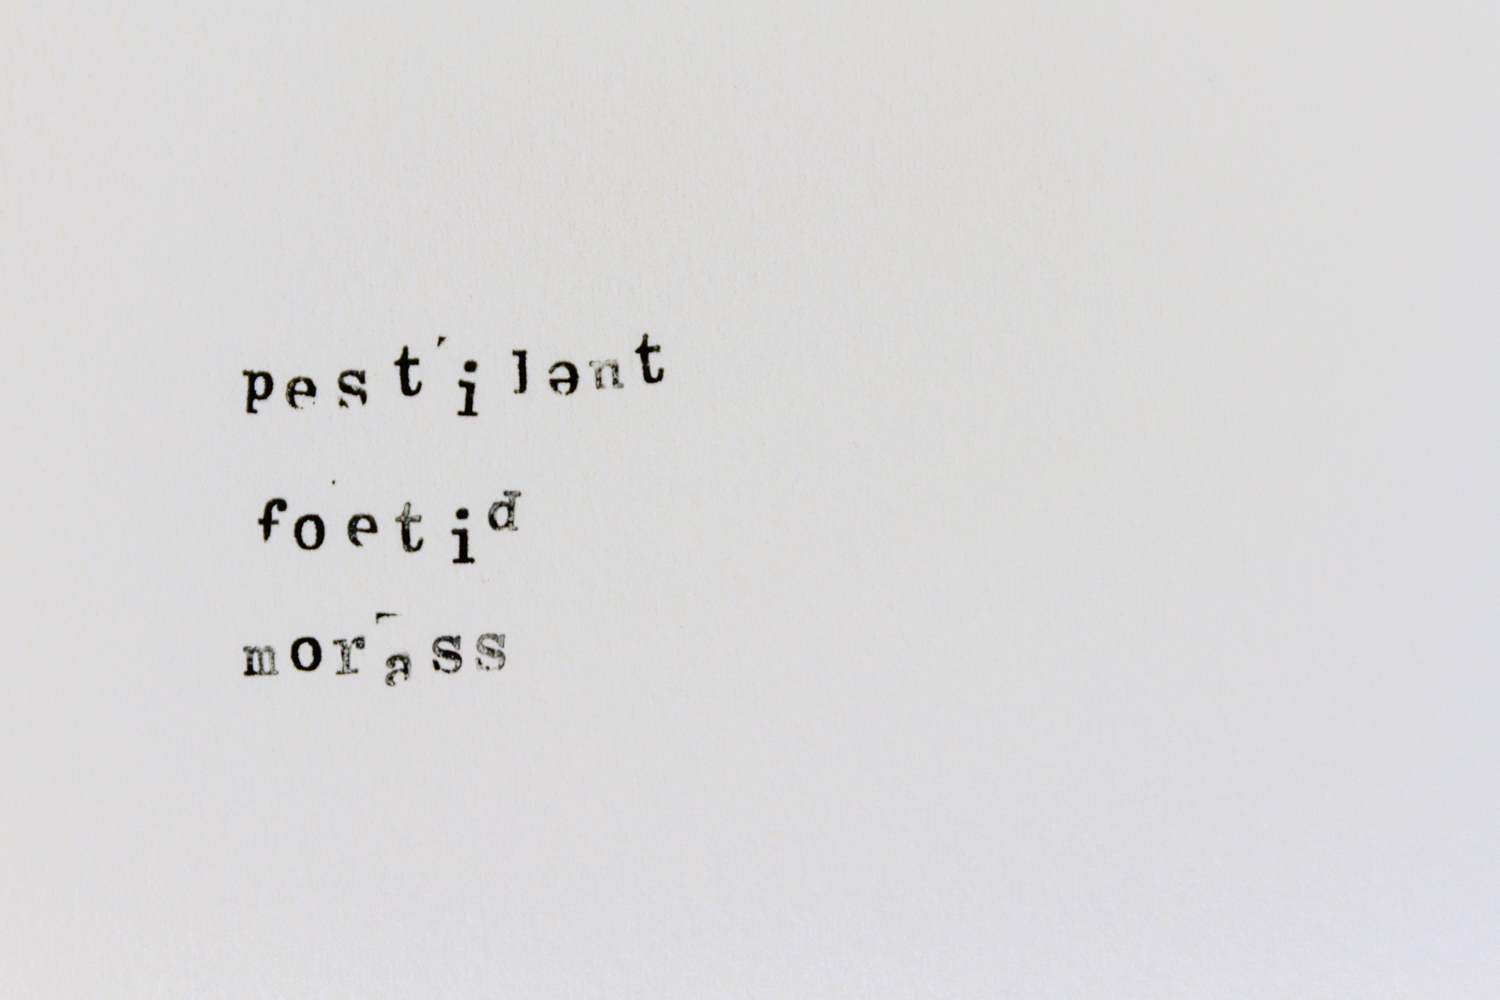 pestilənt
foetid
morass